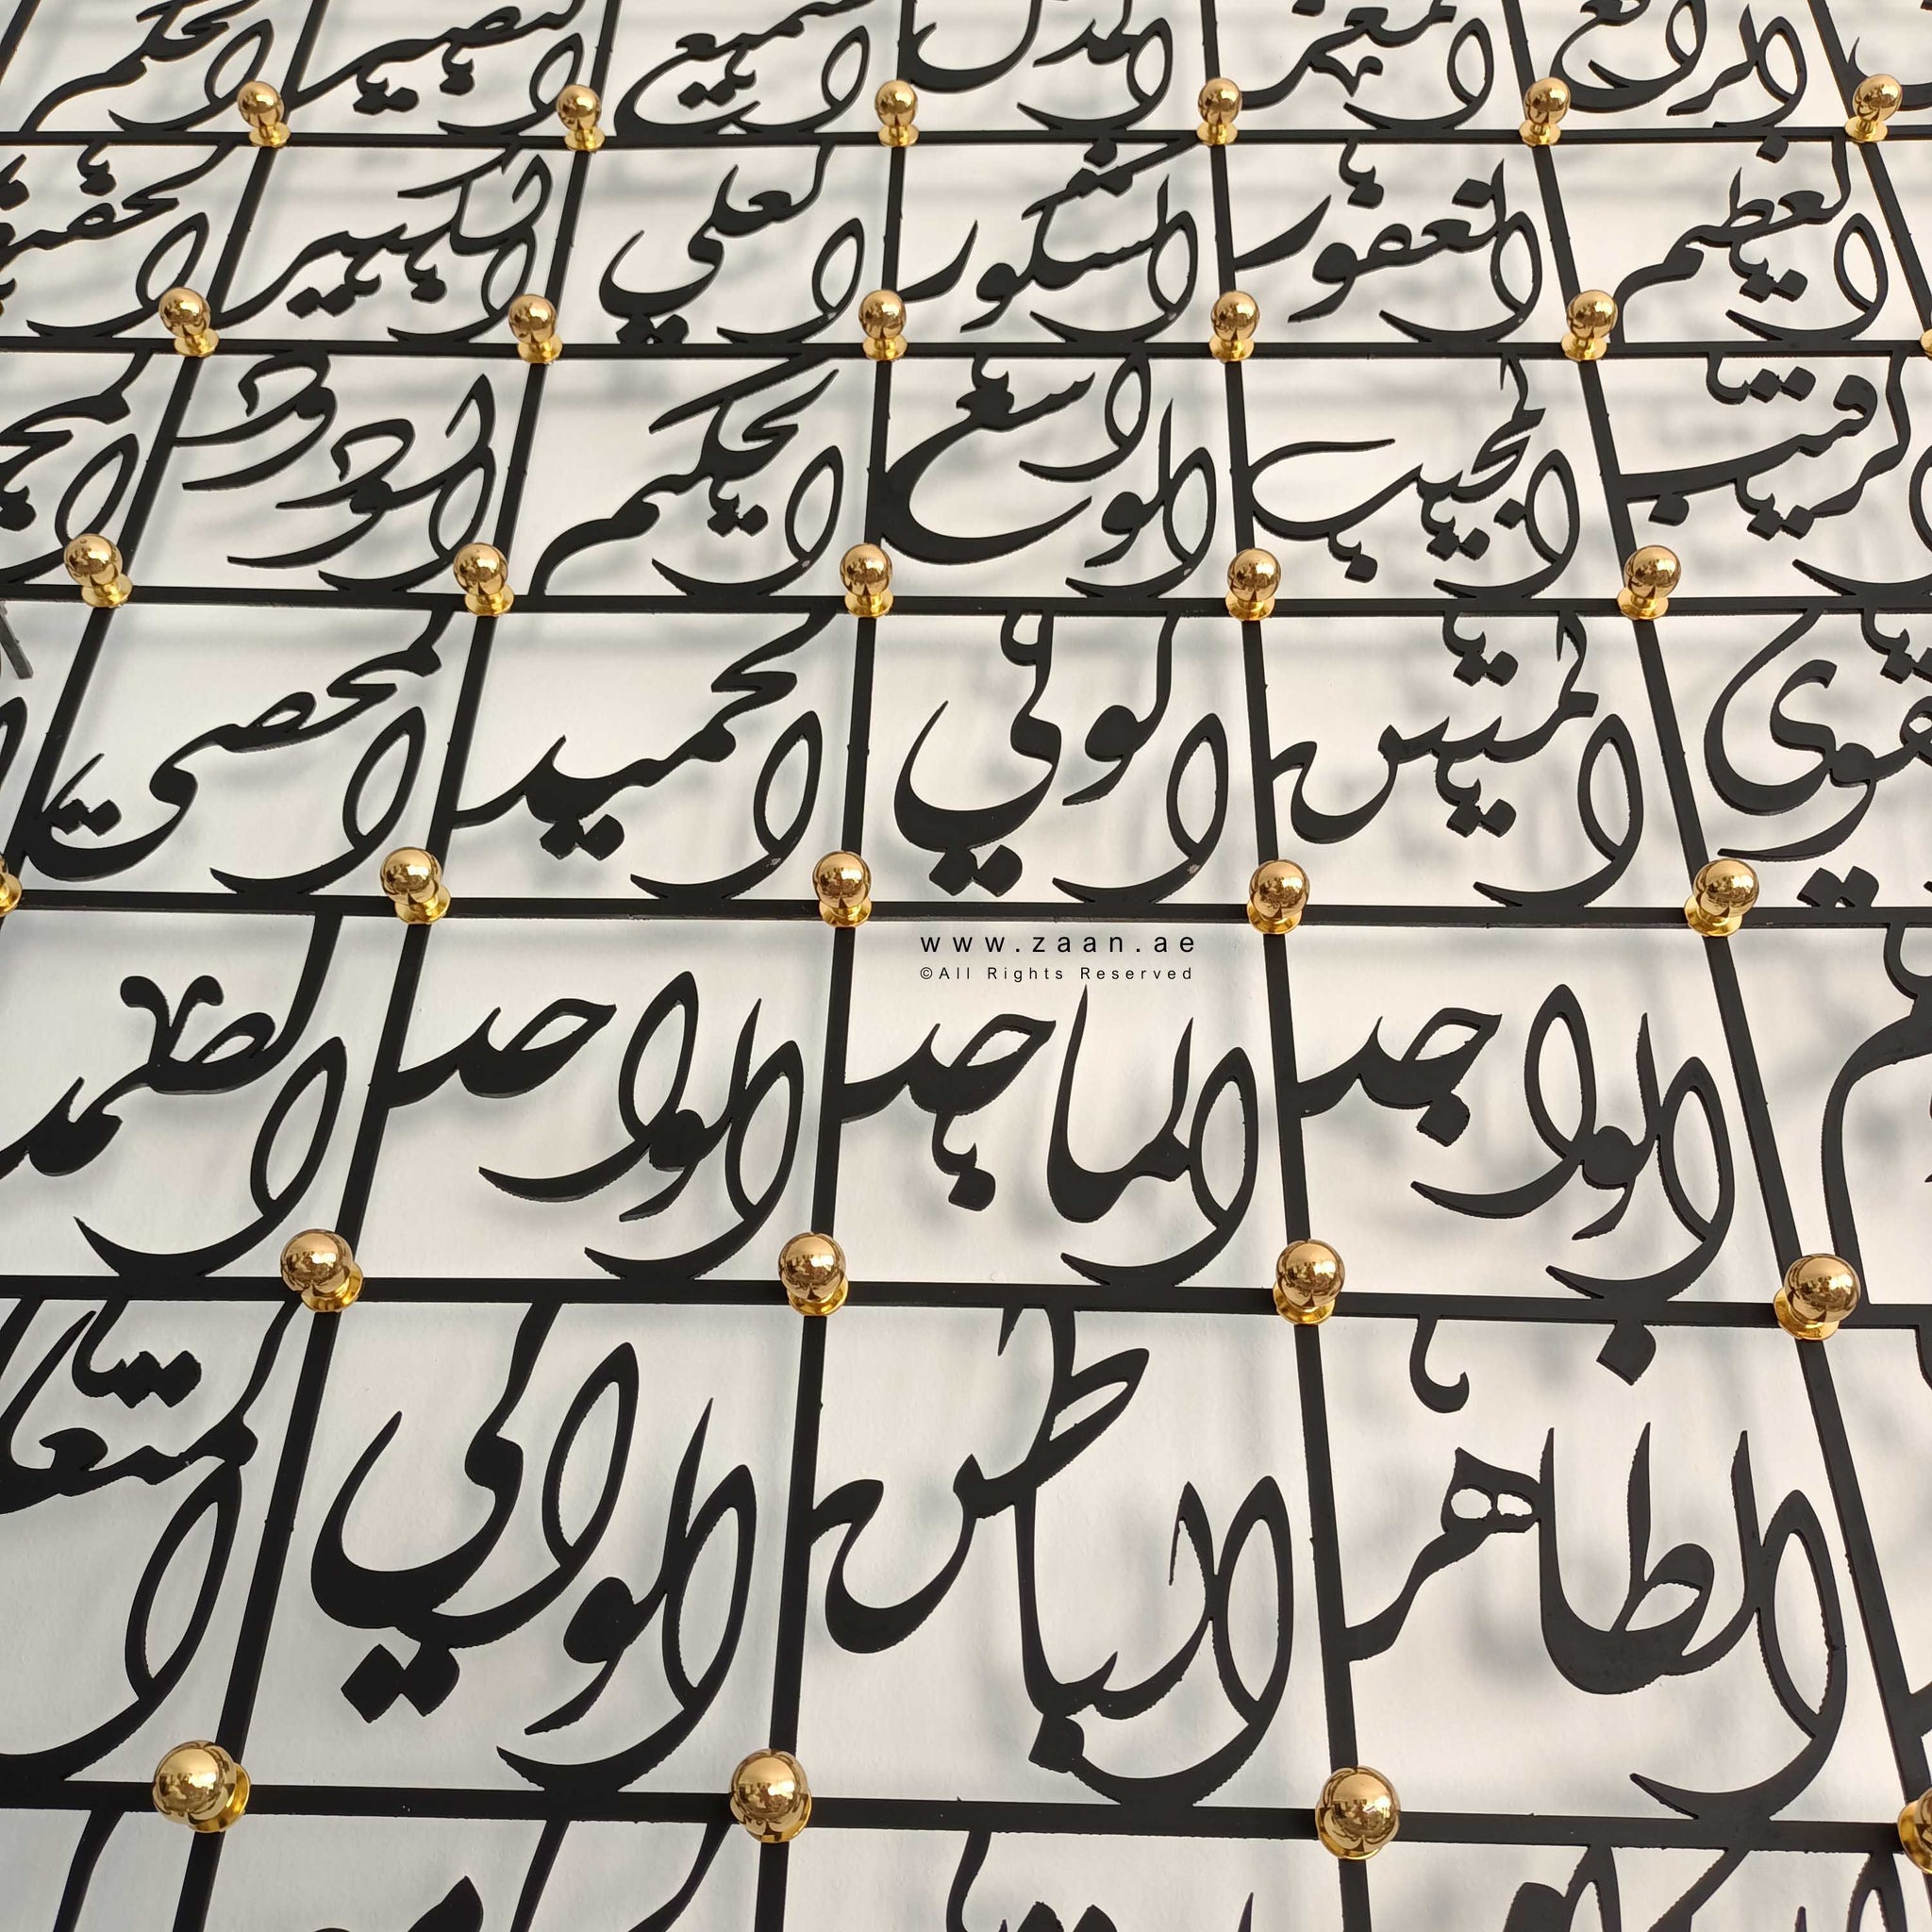 الرافع المعز المذل السميع البصير الحكم
العظيم الغفور الشكور العلي الكبير الحفيظ
الرقيب المجيب الواسع الحكيم الودود
القوي المتين الولي الحميد المحصي
www.zaan.ae
©All Rights Reserved
الواجد الماجد الواحد الصمد
الظاهر الباطن الوالي